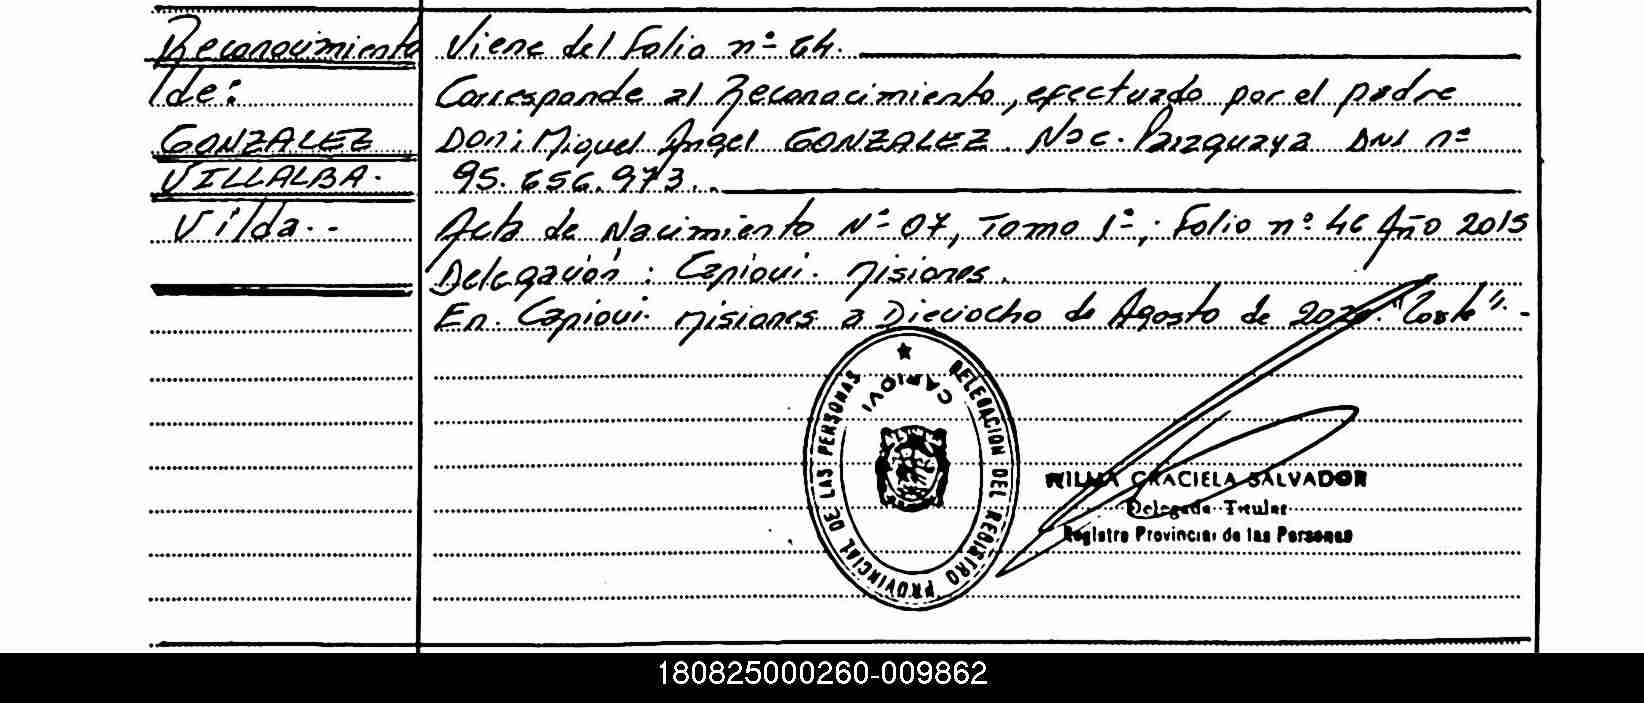 Reconocimiento
de:
GONZALEZ
VILLALBA.
Vilda.--
Viene del Folio nº 64.
Corresponde al Reconocimiento, efectuado por el padre
Don: Miguel Angel GONZALEZ. Nac. Paraguaya DNI nº
95.656.973..
Acta de Nacimiento Nº 07, Tomo 1º, Folio nº 46 Año 2015
Delegación: Capiovi. Misiones.
En. Capiovi. Misiones a Dieciocho de Agosto de "Conste".-
DELEGACION DEL REGISTRO PROVINCIAL DE LAS PERSONAS
CAPIOVI
WILMA GRACIELA SALVADOR
Delegada Titular
Registro Provincial de las Personas
180825000260-009862